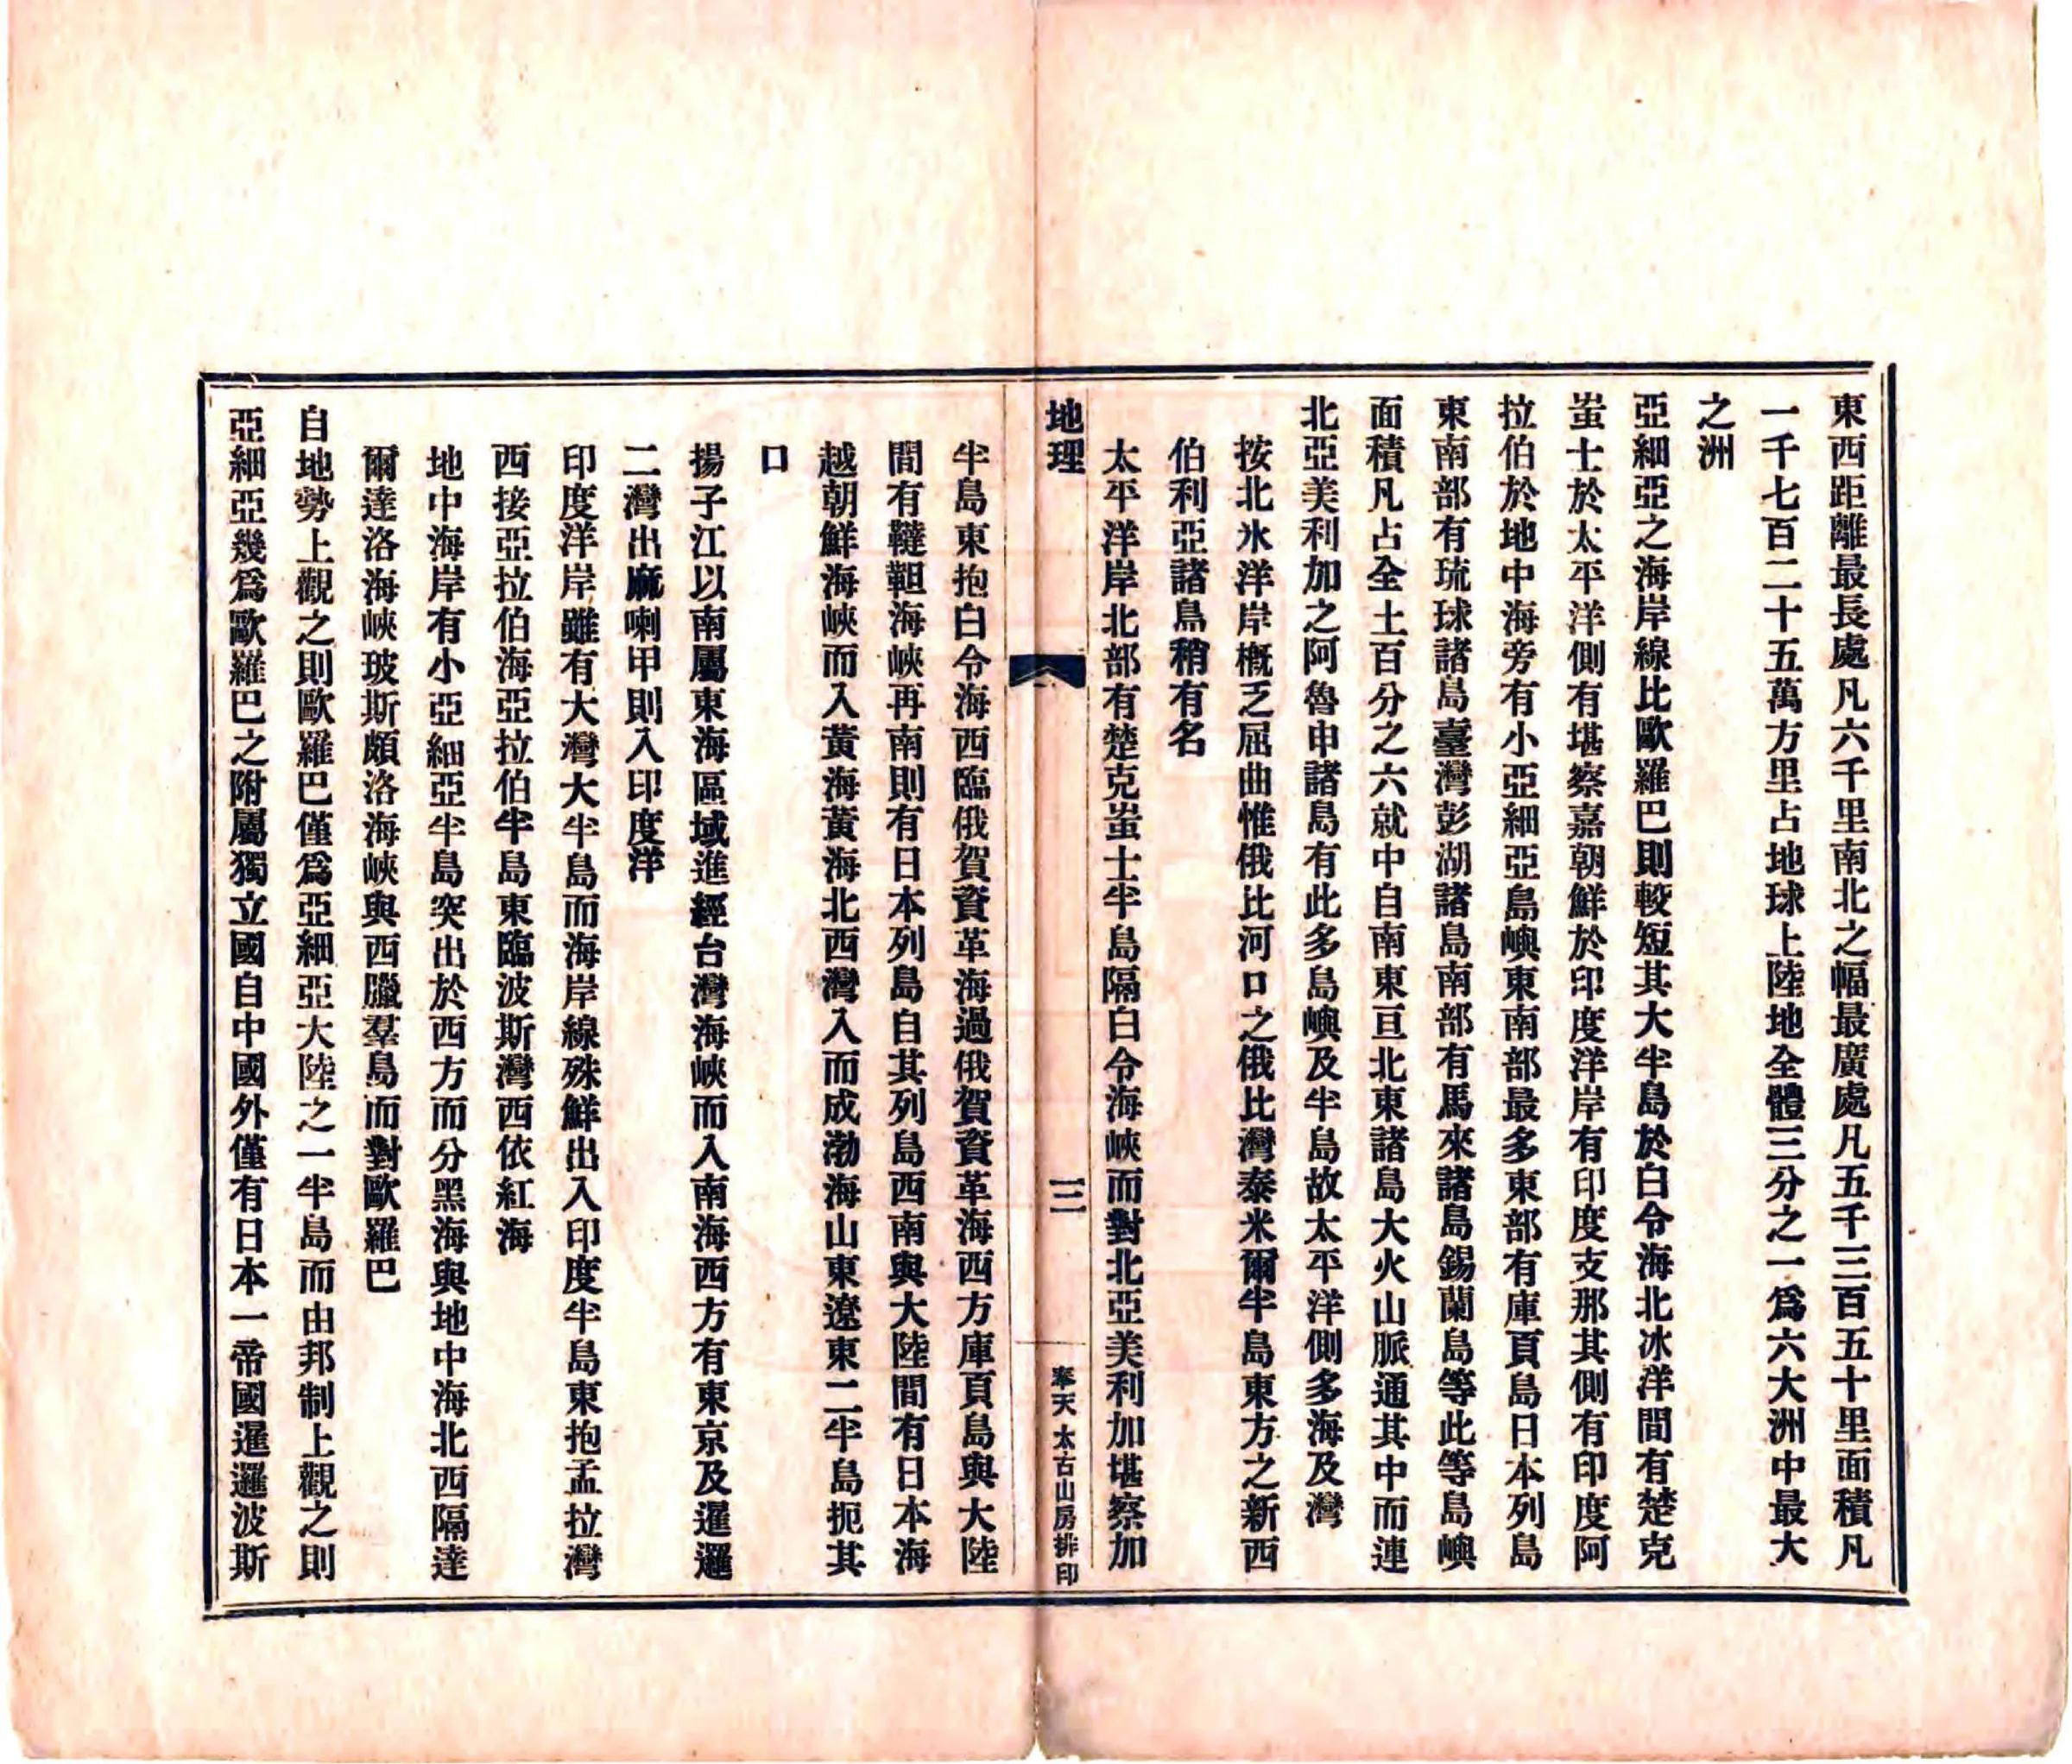 東西距離最長處凡六千里南北之幅最廣處凡五千三百五十里面積凡
一千七百二十五萬方里占地球上陸地全體三分之一爲六大洲中最大
之洲
亞細亞之海岸線比歐羅巴則較短其大半島於白令海北冰洋間有楚克
蚩士於太平洋側有堪察嘉朝鮮於印度洋岸有印度支那其側有印度阿
拉伯於地中海旁有小亞細亞島嶼東南部最多東部有庫頁島日本列島
東南部有琉球諸島臺灣彭湖諸島南部有馬來諸島錫蘭島等此等島嶼
面積凡占全土百分之六就中自南東亘北東諸島大火山脈通其中而連
北亞美利加之阿魯申諸島有此多島嶼及半島故太平洋側多海及灣
按北氷洋岸槪乏屈曲惟俄比河口之俄比灣泰米爾半島東方之新西
伯利亞諸島稍有名
太平洋岸北部有楚克蚩士半島隔白令海峽而對北亞美利加堪察加
地理
三
奉天太古山房排印
半島東抱白令海西臨俄賀資革海過俄賀資革海西方庫頁島與大陸
間有韃靼海峽再南則有日本列島自其列島西南與大陸間有日本海
越朝鮮海峽而入黃海黃海北西灣入而成渤海山東遼東二半島扼其
口
揚子江以南屬東海區域進經台灣海峽而入南海西方有東京及暹邏
二灣出麻喇甲則入印度洋
印度洋岸雖有大灣大半島而海岸線殊鮮出入印度半島東抱孟拉灣
西接亞拉伯海亞拉伯半島東臨波斯灣西依紅海
地中海岸有小亞細亞半島突出於西方而分黑海與地中海北西隔達
爾達洛海峽玻斯頗洛海峽與西臘羣島而對歐羅巴
自地勢上觀之則歐羅巴僅爲亞細亞大陸之一半島而由邦制上觀之則
亞細亞幾爲歐羅巴之附屬獨立國自中國外僅有日本一帝國暹邏波斯